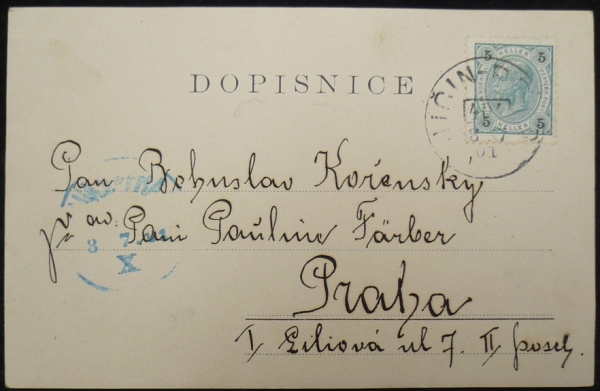 DOPISNICE
5 HELLER 5
5 HELLER 5
JIČIN
Pan Bohuslav Kořenský
Paní Pauline Färber
3 7 01
X
Praha
I, Liliová ul 7. II, posch.